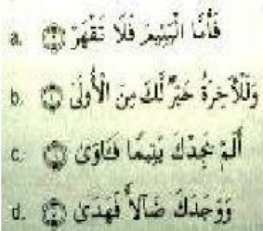 a. فَأَمَّا الْيَتِيمَ فَلَا تَقْهَرْ
b. وَلَلْآخِرَةُ خَيْرٌ لَّكَ مِنَ الْأُولَىٰ
c. أَلَمْ يَجِدْكَ يَتِيمًا فَآوَىٰ
d. وَوَجَدَكَ ضَالًّا فَهَدَىٰ